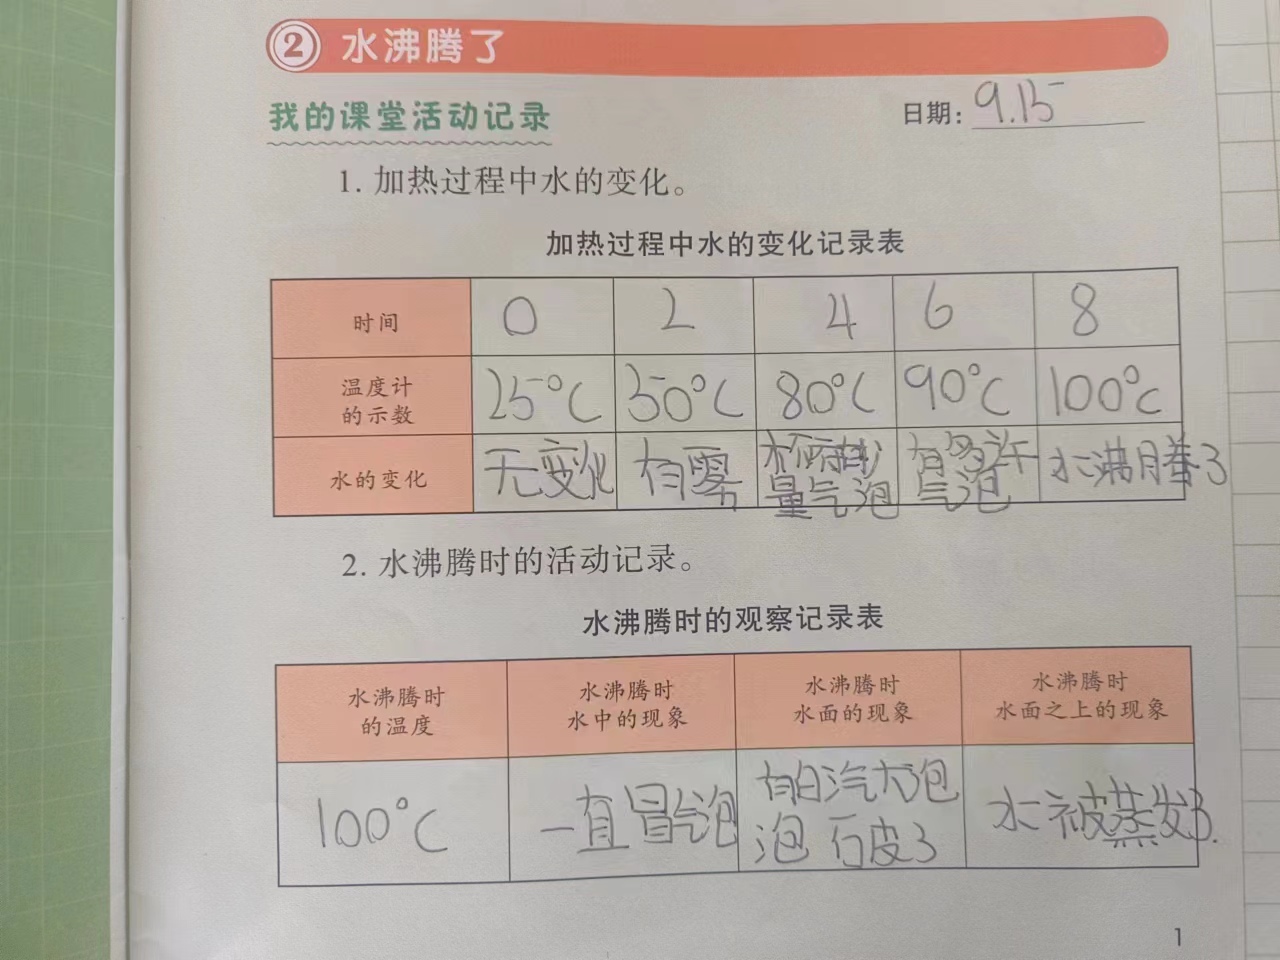 ② 水沸腾了
我的课堂活动记录
日期: 9.15
1. 加热过程中水的变化。
加热过程中水的变化记录表
时间 0 2 4 6 8
温度计的示数 25°C 50°C 80°C 90°C 100°C
水的变化 无变化 有雾 杯底有少量气泡 有多许气泡 水沸腾了
2. 水沸腾时的活动记录。
水沸腾时的观察记录表
水沸腾时的温度 水沸腾时水中的现象 水沸腾时水面的现象 水沸腾时水面之上的现象
100°C 一直冒气泡 有白汽大泡泡石皮了 水被蒸发了.
1